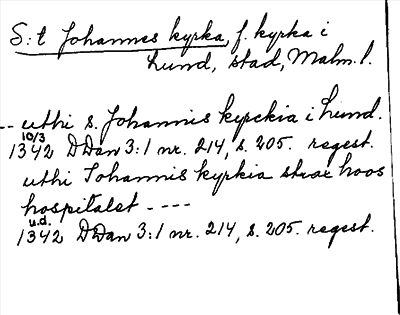 S:t Johannes kyrka, f. kyrka i
Lund, stad, Malm. l.
-- uthi s. Johannis kyrckia i Lund.
10/3
1342 DDan 3:1 nr. 214, s. 205. regest.
uthi Johannis kyrkia strax hoos
hospitalet ----
u.d.
1342 DDan 3:1 nr. 214, s. 205. regest.